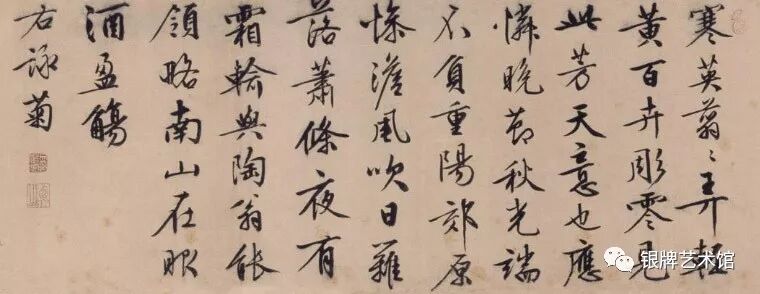 寒英翦〻弄輕
黄百卉彫零見
此芳天意也應
憐晚節秋光端
不負重陽郊原
惨澹風吹日籬
落蕭條夜有
霜輸與陶翁能
領略南山在眼
酒盈觴
右詠菊
银牌艺术馆